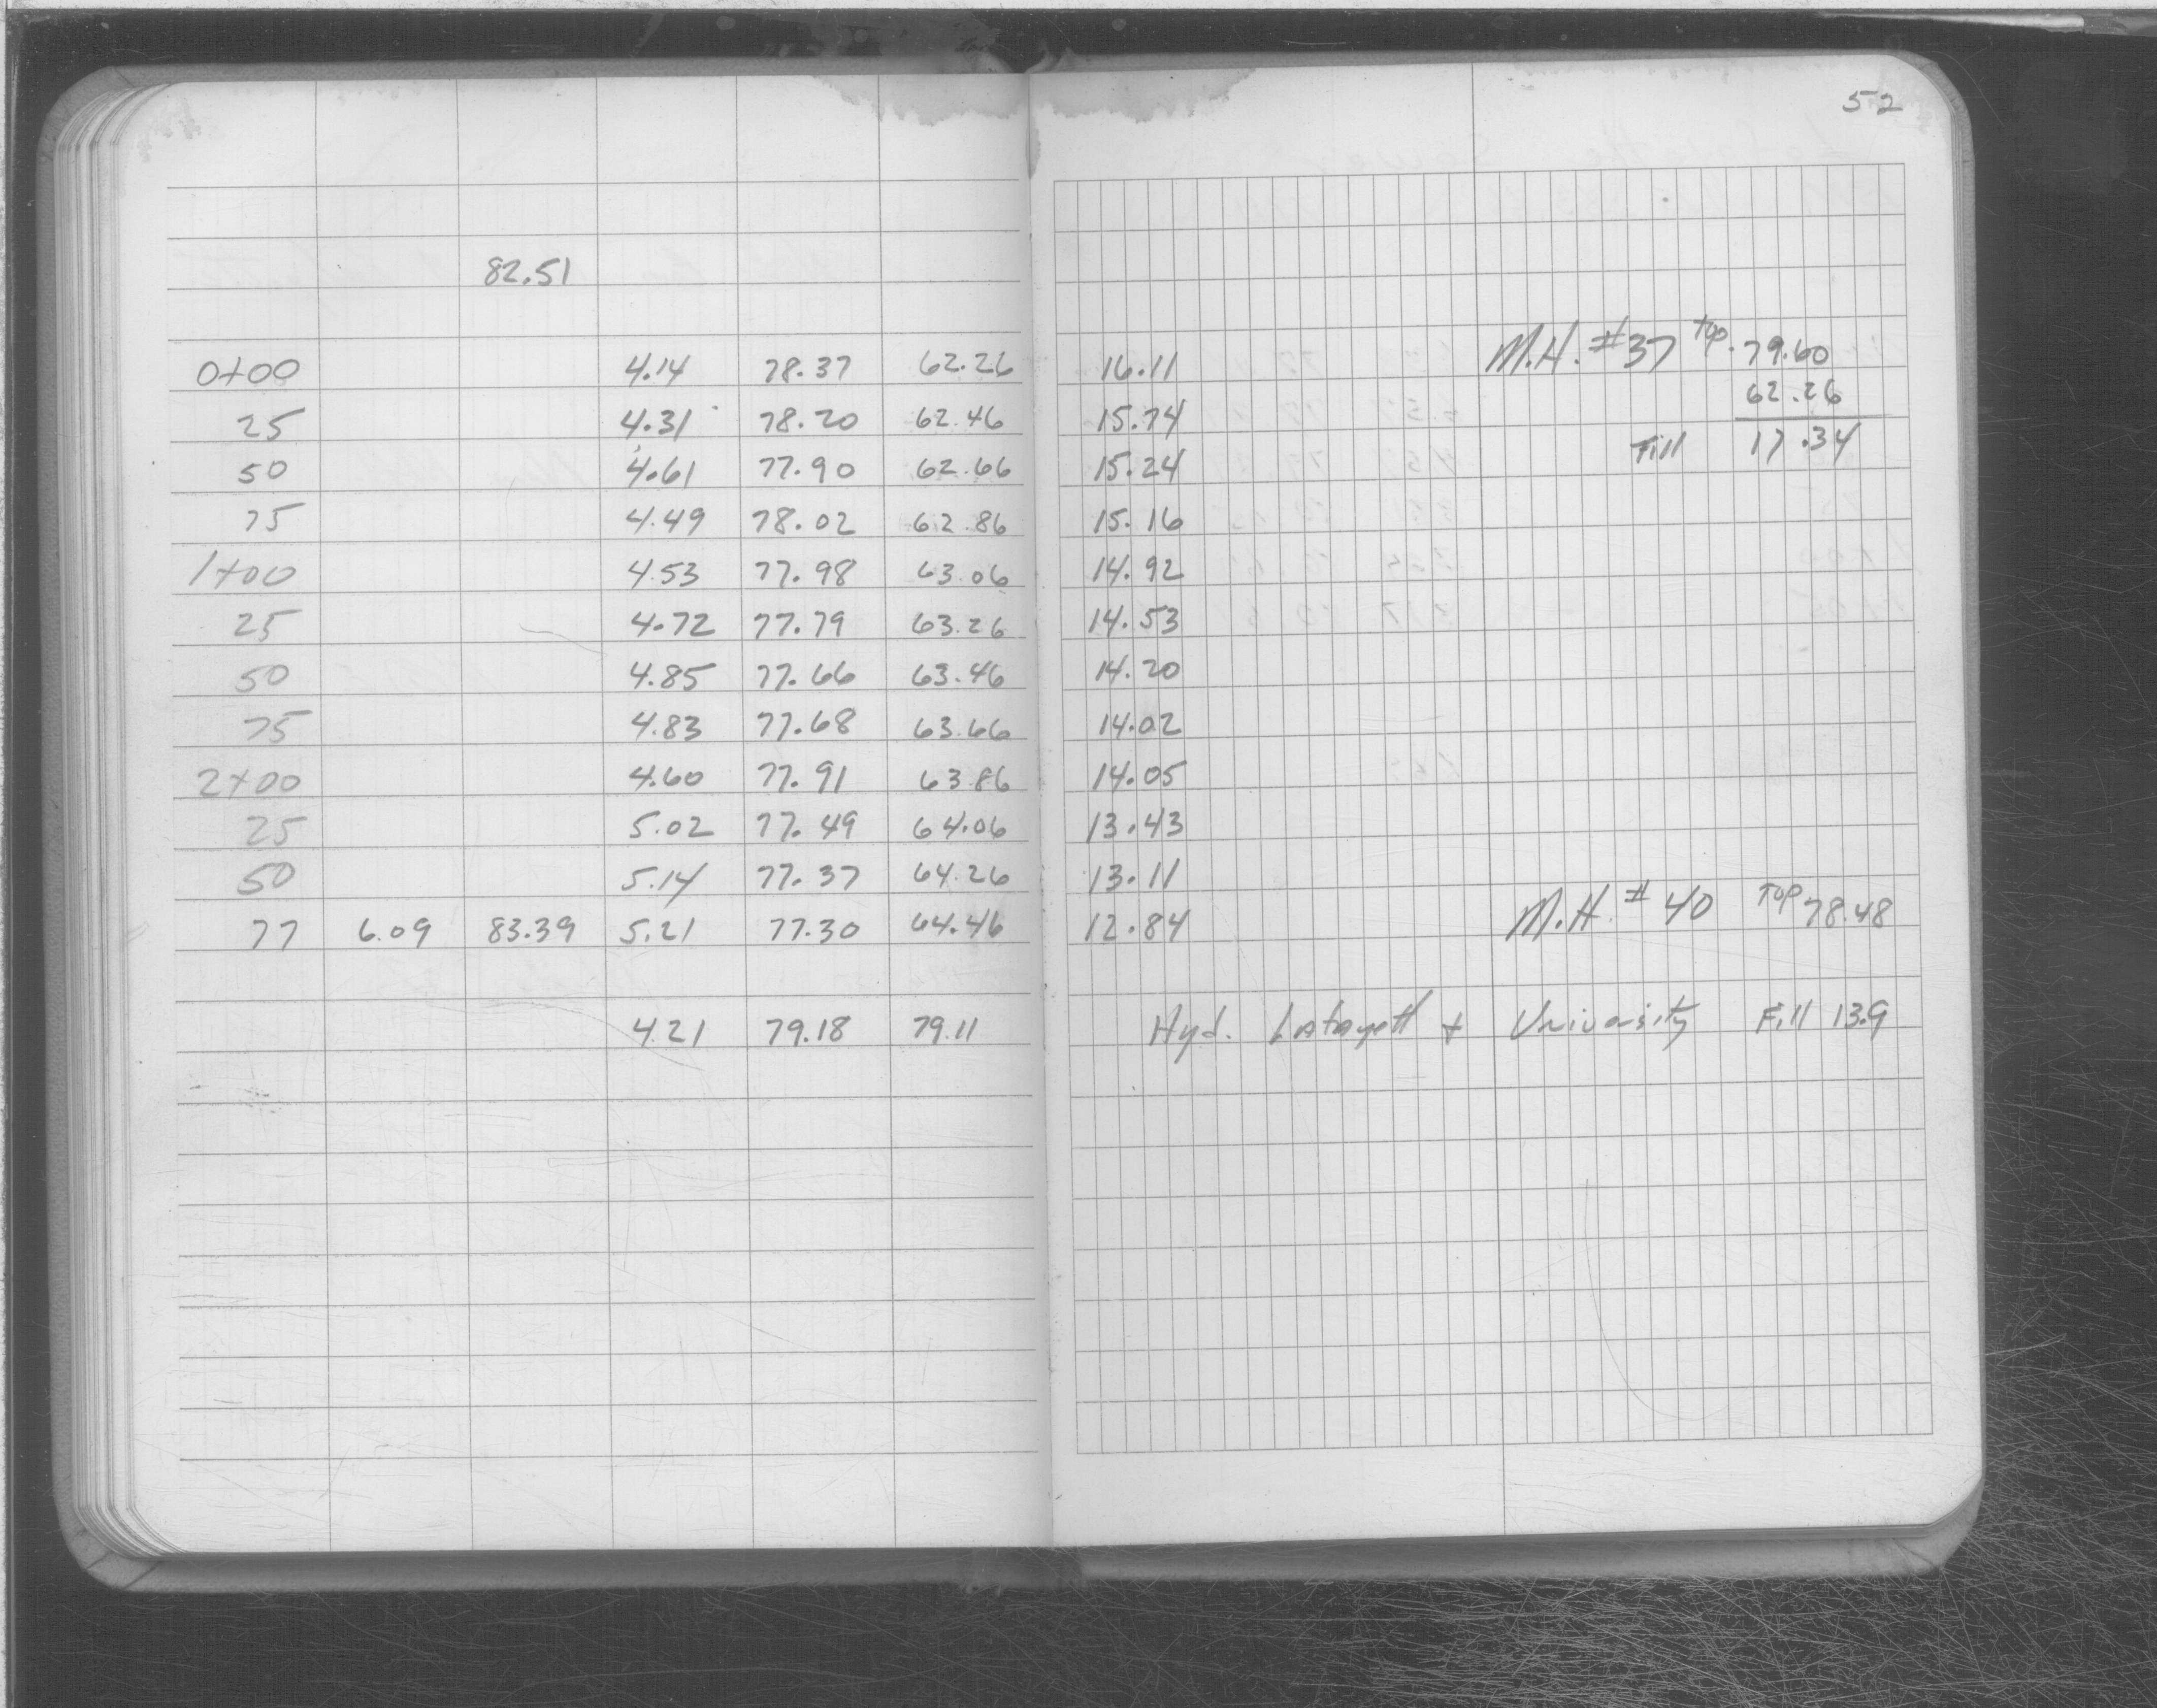 52
82.51
0+00 4.14 78.37 62.26 16.11 M.H. #37 top. 79.60
62.26
25 4.31 78.20 62.46 15.74
Fill 17.34
50 4.61 77.90 62.66 15.24
75 4.49 78.02 62.86 15.16
1+00 4.53 77.98 63.06 14.92
25 4.72 77.79 63.26 14.53
50 4.85 77.66 63.46 14.20
75 4.83 77.68 63.66 14.02
2+00 4.60 77.91 63.86 14.05
25 5.02 77.49 64.06 13.43
50 5.14 77.37 64.26 13.11
77 6.09 83.39 5.21 77.30 64.46 12.84 M.H. # 40 Top 78.48
4.21 79.18 79.11 Hyd. Lafayett + University Fill 13.9